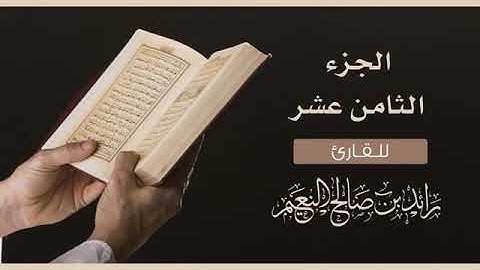 الجزء
الثامن عشر
للقارئ
رائد بن صالح النعيم